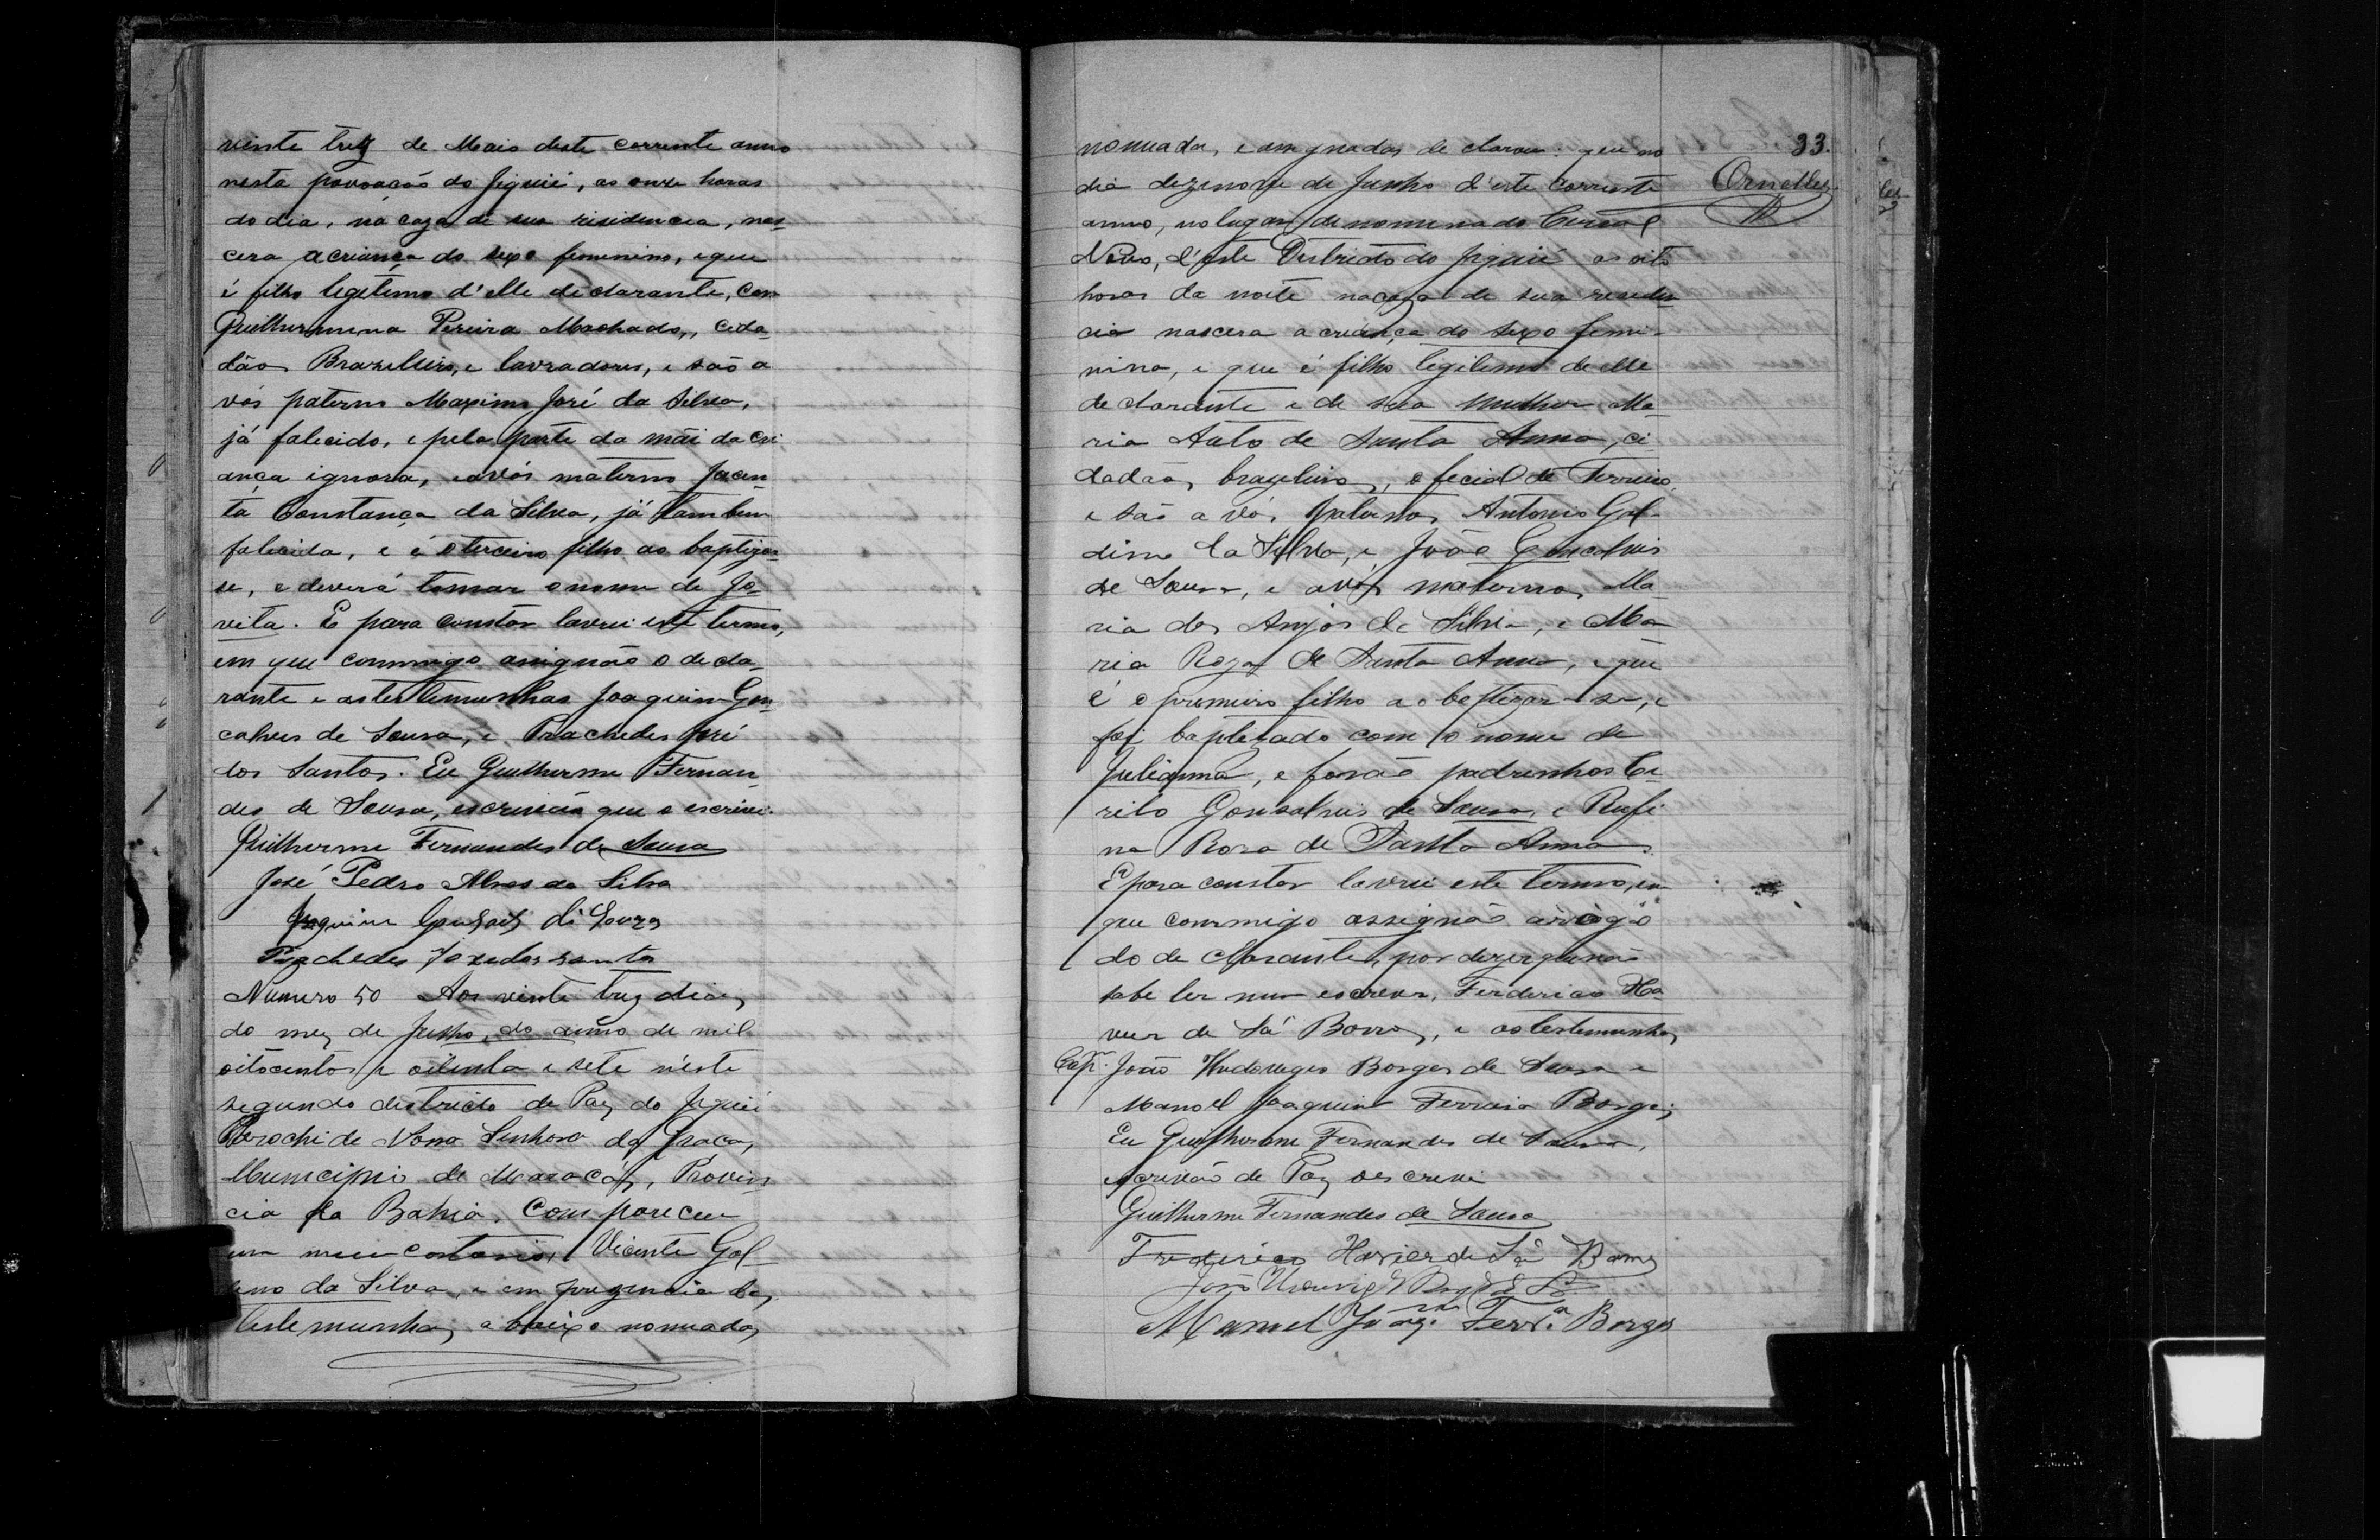 vinte trez de Maio deste corrente anno
nesta povoação do Jiquié, as onze horas
do dia, na caza de sua risidencia, nas
cera a criança do sexo feminino, eque
é filho legitimo d'elle declarante, com
Guilhermina Pereira Machado, cida
dãos Brazileiro, e lavradores, e são a
vós paterno Maximo José da Silva,
já falicido, e pela parte da mãi da cri
ança ignora, eavós materno Jacin
ta Constança da Silva, já tambem
falicida, e é o terceiro filho ao baptizar
se, e deverá tomar o nome de Jo
vita. E para constar lavrei este termo,
em que commigo assignão o decla
rante e as testemunhas Joaquim Gon
calves de Sousa, e Prachedes José
dos Santos. Eu Guilherme Fernan
des de Sousa, escrivão que o escrivi.
Guilherme Fernandes de Sousa
José Pedro Alves da Silva
Joaquim Gonsalves di Souza
Prachedes Joze dos santos
Numero 50 Aos vinte trez dias
do mez de Junho, do anno de mil
oitocentos e oitenta e sete n'este
segundo districto de Paz do Jiquié
Parochi de Nossa Senhora da Graça,
Municipio de Maracás, Provin
cia da Bahia. Compareceu
em meu cartorio, Vicente Gal
dino da Silva, e em prezencia das
testemunhas abaixo nomuadas
33.
Ornellas
nomuada, e assignadas declarou: que no
dia dezenove de Junho d'este corrente
anno, no lugar denomenado Curral
Novo, d'este Destricto do Jiquié as oito
horas da noite na caza de sua residen
cia nascera a criança do sexo femi
nino, e que é filho legitimo de elle
declarante e de sua mulher Ma
ria de Santa Anna, ci
dadãos brazeliros, oficial de Ferreiro,
e são avós paternos Antonio Gal
dino da Silva, e João Goncalves
de Sousa, e avós maternos Ma
ria dos Anjos da Silva, e Ma
ria Roza de Santa Anna, e que
é o premeiro filho a o baptizar-se, e
foi baptezado com o nome de
Julianna, e forão padrinhos Ci
rilo Gonsalves de Sousa, e Rufi
na Roza de Santa Anna.
E para constar lavrei este termo, em
que commigo assignão arrôgo
do declarante, por dezer que não
sabe ler nem escrever, Ferderico Ha
vier de Sá Barros, e as testemunhas
Cap.m João Borges de Sousa e
Manoel Joaquim Ferreira Borges,
Eu Guilherme Fernandes de Sousa,
escrivão de Paz o escrevi
Guilherme Fernandes de Sousa
Frederico Havier de Sá Barros
João
Manuel Ferr.a Borges